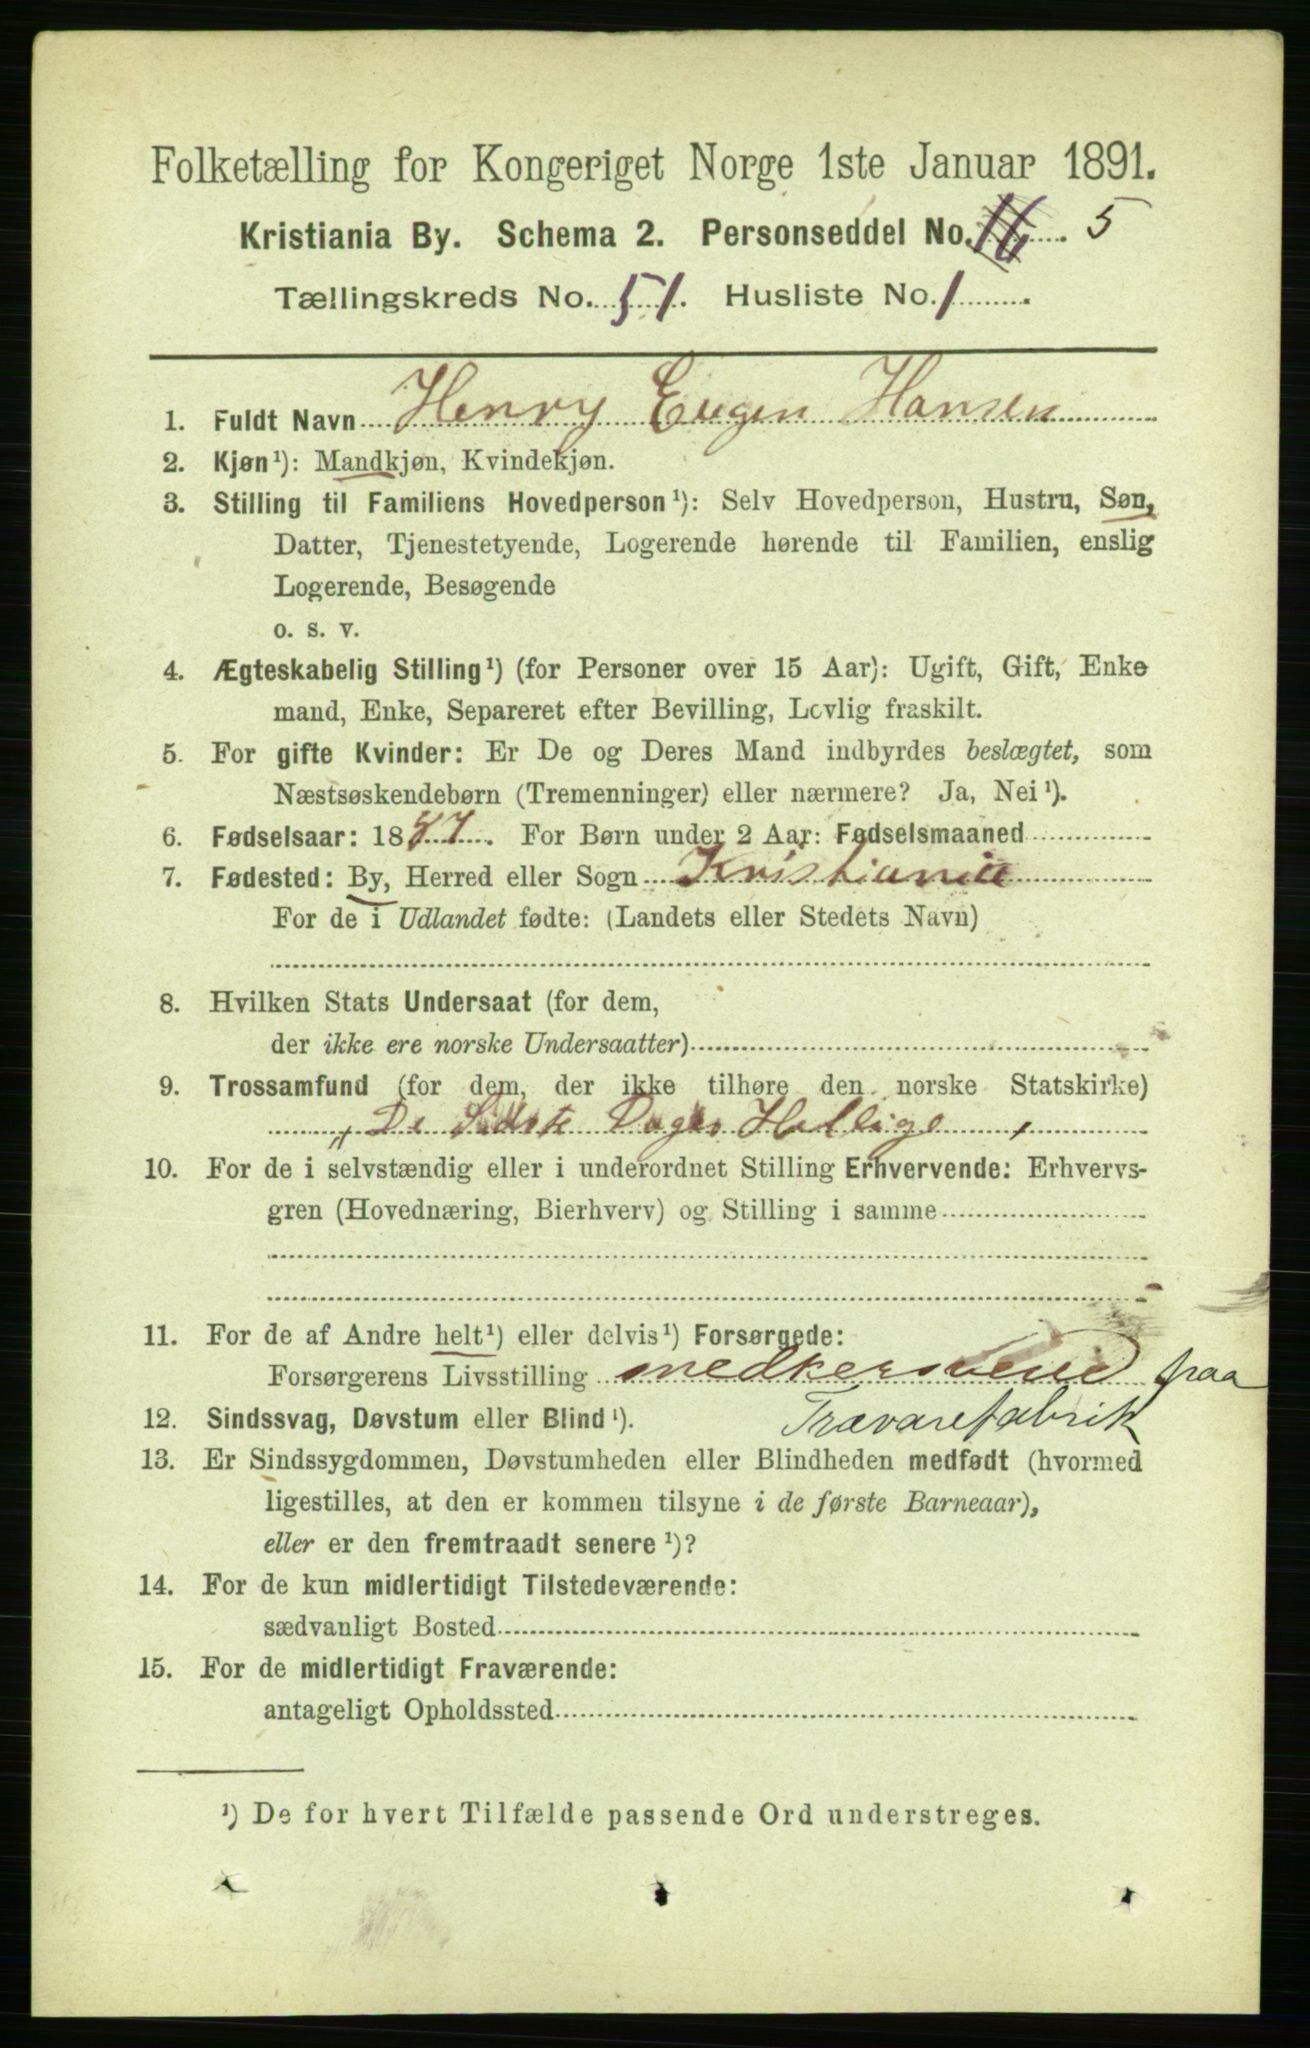 Folketælling for Kongeriget Norge 1ste Januar 1891.
Kristiania By. Schema 2. Personseddel No. 16. 5
Tællingskreds No. 51. Husliste No. 1.
1. Fuldt Navn Henry Eugen Hansen
2. Kjøn¹): Mandkjøn, Kvindekjøn.
3. Stilling til Familiens Hovedperson¹): Selv Hovedperson, Hustru, Søn,
Datter, Tjenestetyende, Logerende hørende til Familien, enslig
Logerende, Besøgende
o. s. v.
4. Ægteskabelig Stilling¹) (for Personer over 15 Aar): Ugift, Gift, Enke
mand, Enke, Separeret efter Bevilling, Lovlig fraskilt.
5. For gifte Kvinder: Er De og Deres Mand indbyrdes beslægtet, som
Næstsøskendebørn (Tremenninger) eller nærmere? Ja, Nei¹).
6. Fødselsaar: 1887. For Børn under 2 Aar: Fødselsmaaned
7. Fødested: By, Herred eller Sogn Kristiania
For de i Udlandet fødte: (Landets eller Stedets Navn)
8. Hvilken Stats Undersaat (for dem,
der ikke ere norske Undersaatter)
9. Trossamfund (for dem, der ikke tilhøre den norske Statskirke)
„De Sidste Dages Hellige
10. For de i selvstændig eller i underordnet Stilling Erhvervende: Erhvervs-
gren (Hovednæring, Bierhverv) og Stilling i samme
11. For de af Andre helt¹) eller delvis¹) Forsørgede:
Forsørgerens Livsstilling snedkersvend paa
Trævarefabrik
12. Sindssvag, Døvstum eller Blind¹).
13. Er Sindssygdommen, Døvstumheden eller Blindheden medfødt (hvormed
ligestilles, at den er kommen tilsyne i de første Barneaar),
eller er den fremtraadt senere¹)?
14. For de kun midlertidigt Tilstedeværende:
sædvanligt Bosted
15. For de midlertidigt Fraværende:
antageligt Opholdssted
¹) De for hvert Tilfælde passende Ord understreges.